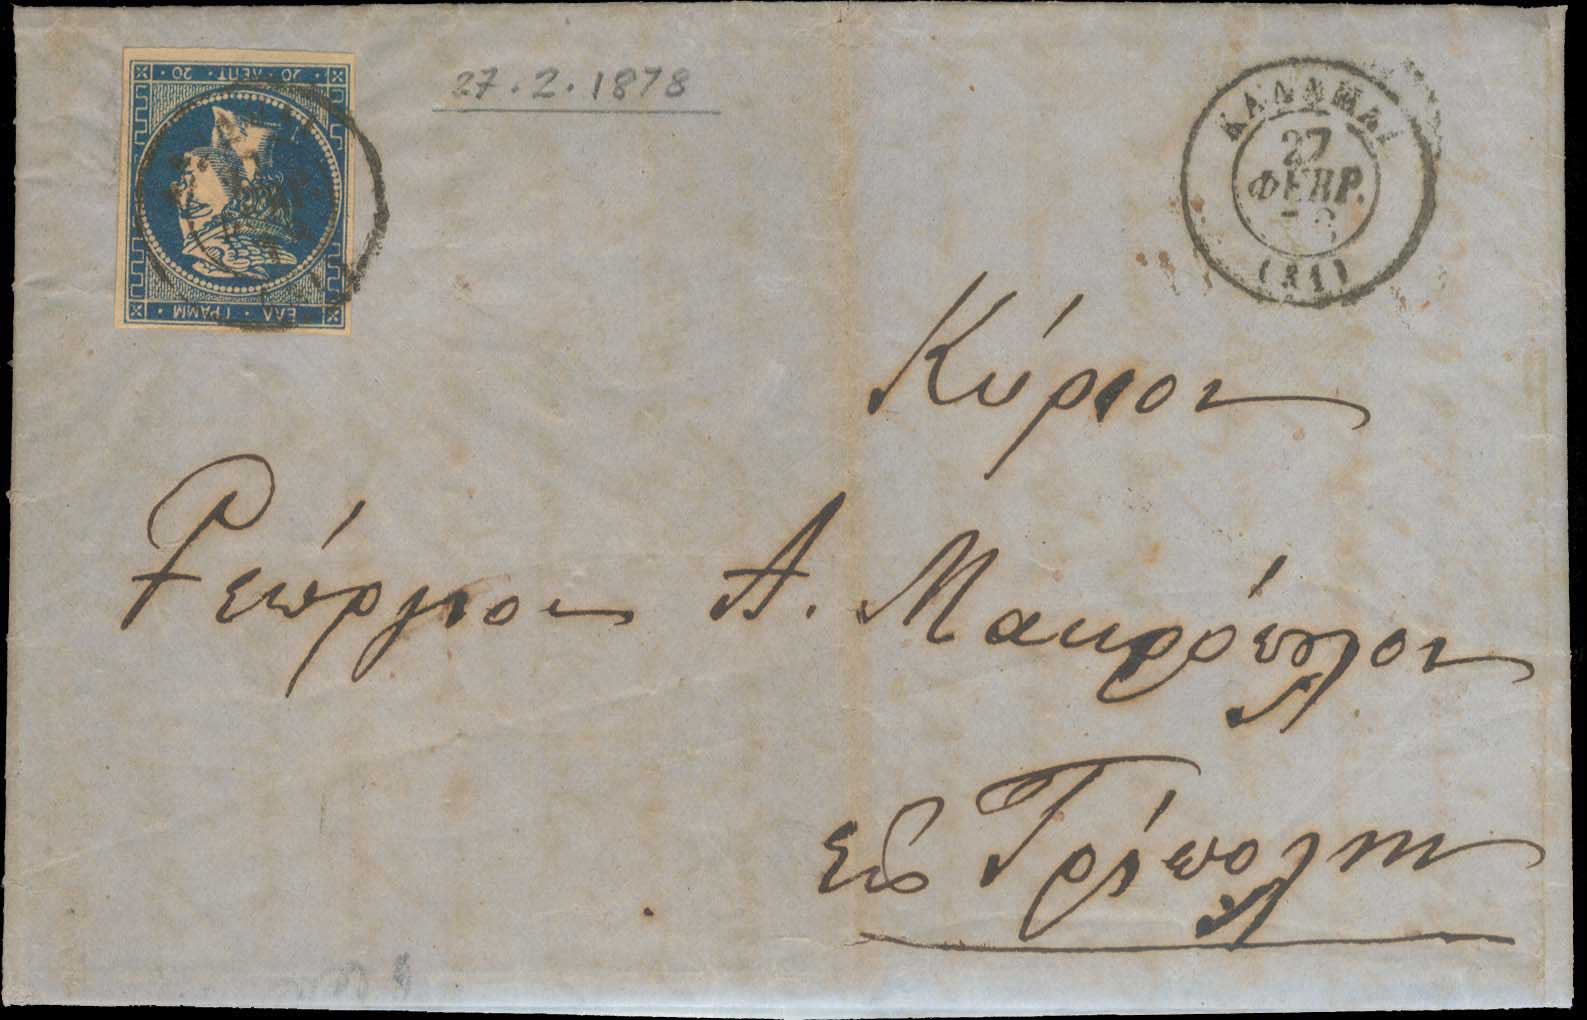 20 · ΛΕΠΤ · 20
27.2.1878
ΚΑΛΑΜΑΙ
27
ΦΕΒΡ.
(31)
ΕΛΛ · ΓΡΑΜΜ
Κύριον
Γεώργιον Α. Μακρόπουλον
εἰς Τρίπολιν